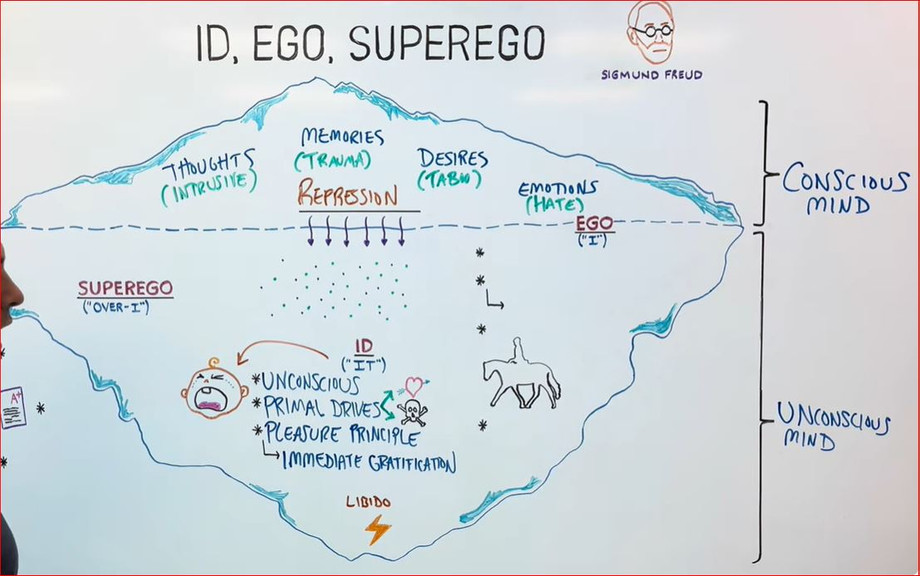 ID, EGO, SUPEREGO
SIGMUND FREUD
THOUGHTS
(INTRUSIVE)
MEMORIES
(TRAUMA)
REPRESSION
DESIRES
(TABOO)
EMOTIONS
(HATE)
CONSCIOUS
MIND
EGO
("I")
*
*
*
*
SUPEREGO
("OVER-I")
ID
("IT")
*UNCONSCIOUS
*PRIMAL DRIVES
*PLEASURE PRINCIPLE
IMMEDIATE GRATIFICATION
LIBIDO
UNCONSCIOUS
MIND
*
A+
*
*